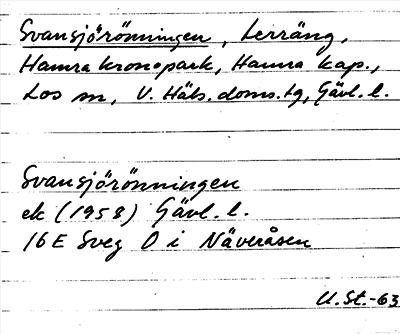 Svansjörönningen, terräng,
Hamra kronopark, Hamra kap.,
Los sn, V. Häls. doms. tg, Gävl. l.
Svansjörönningen
ek (1958) Gävl. l.
16 E Sveg O i Näveråsen
U. St. -63